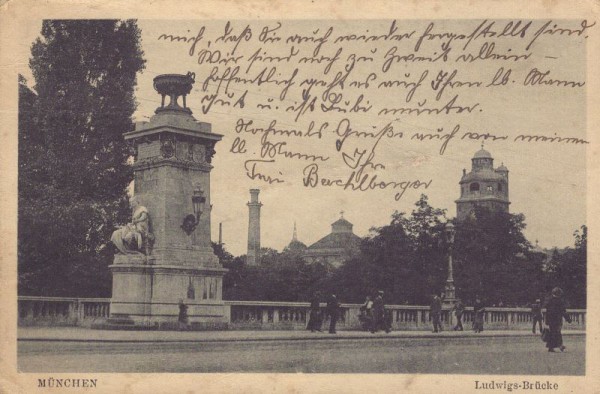 mich, daß Sie auch wieder hergestellt sind.
Wir sind noch zu Zweit allein –
hoffentlich geht es auch Ihrem lb. Mann
gut u. ist Bubi munter.
Nochmals Grüße auch von meinem
lb. Mann Ihre
Bachlberger
MÜNCHEN
Ludwigs-Brücke